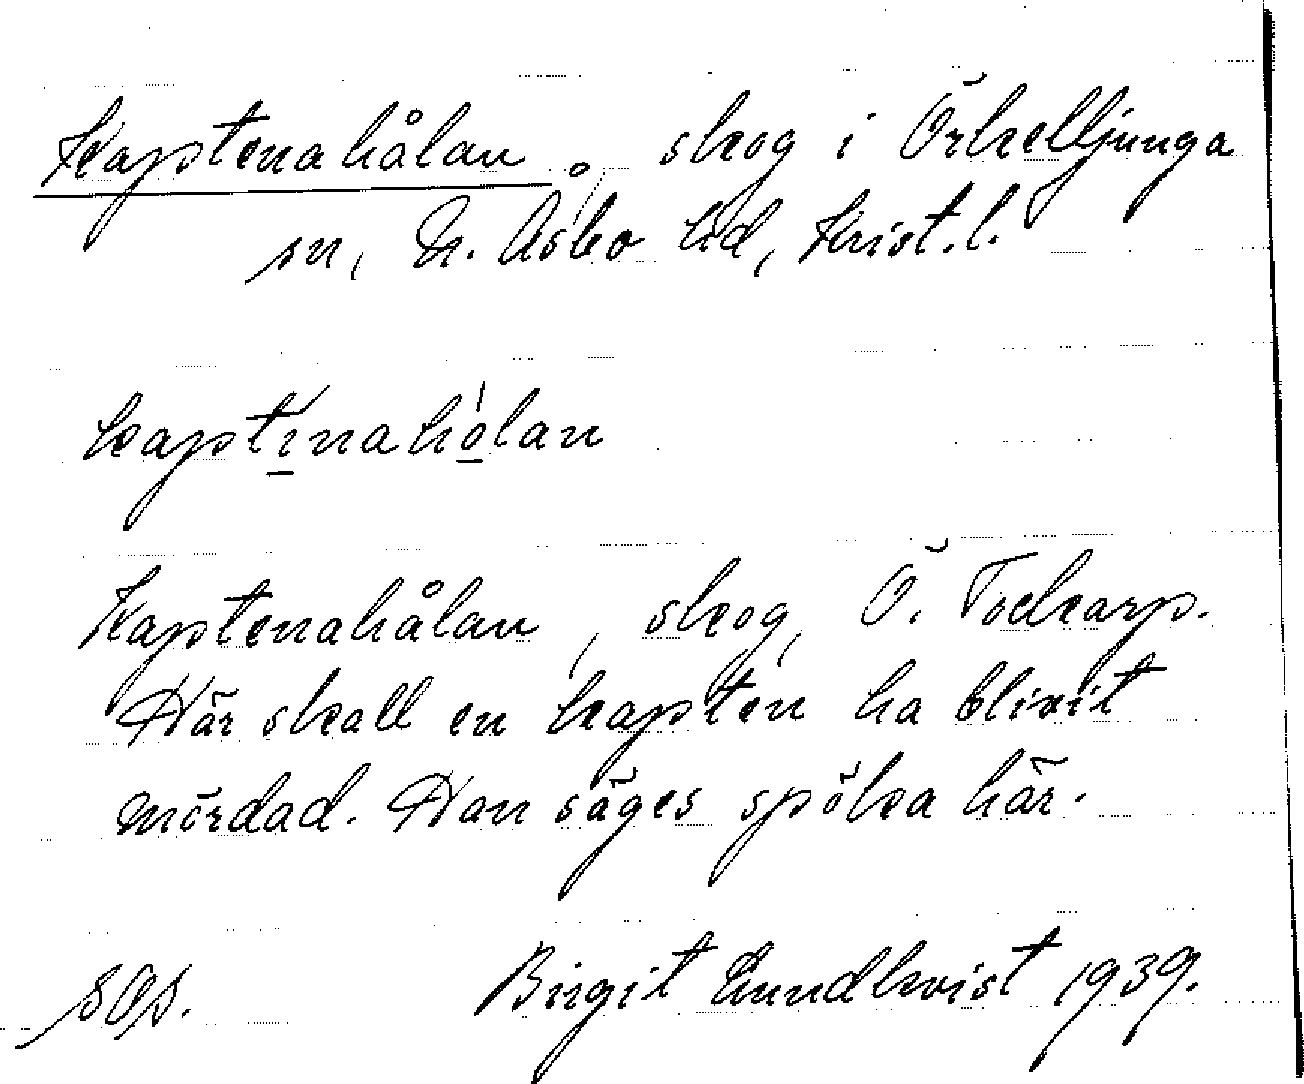 Kaptenahålan, skog i Örkelljunga
sn, N. Åsbo hd, Krist. l.
kaptinahólan
Kaptenahålan, skog, Ö. Tockarp.
Här skall en kapten ha blivit
mördad. Han säges spöka här.
SOS. Birgit Lundkvist 1939.